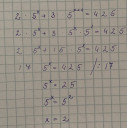 2 · 5ˣ + 3 · 5ˣ⁺¹ = 425
2 · 5ˣ + 3 · 5ˣ · 5 = 425
2 · 5ˣ + 15 · 5ˣ = 425
17 · 5ˣ = 425 / : 17
5ˣ = 25
5ˣ = 5²
x = 2